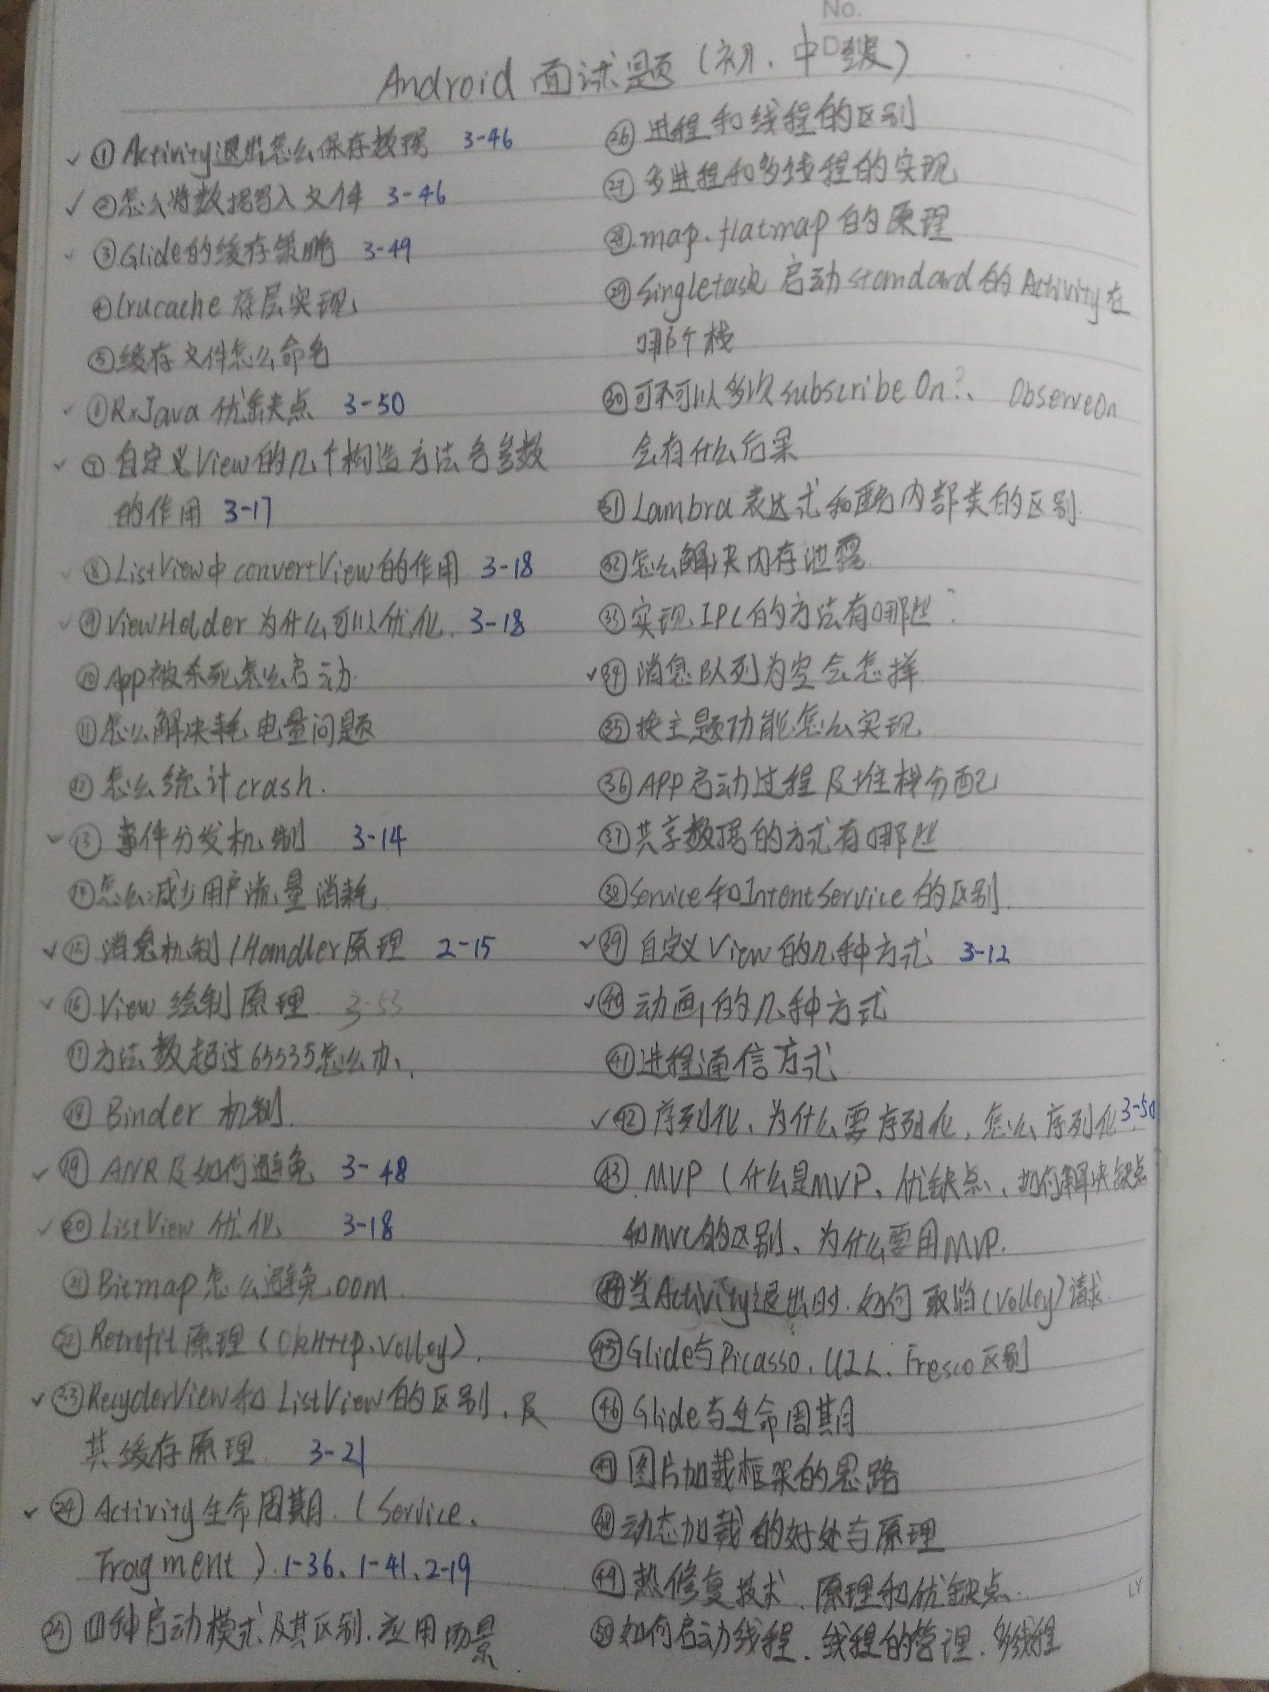 No.
Android 面试题（初、中级）
✓ ①Activity退出怎么保存数据 3-46
✓ ②怎么将数据写入文件 3-46
✓ ③Glide的缓存策略 3-49
④Lrucache底层实现
⑤缓存文件怎么命名
✓ ⑥RxJava 优缺点 3-50
✓ ⑦自定义View的几个构造方法各参数
的作用 3-17
✓ ⑧ListView中convertView的作用 3-18
✓ ⑨ViewHolder为什么可以优化. 3-18
⑩App被杀死怎么启动.
⑪怎么解决耗电量问题
⑫怎么统计crash.
✓ ⑬事件分发机制 3-14
⑭怎么减少用户流量消耗
✓ ⑮消息机制/Handler原理 2-15
✓ ⑯View 绘制原理 3-53
⑰方法数超过65535怎么办、
⑱Binder 机制.
✓ ⑲ANR及如何避免 3-48
✓ ⑳ListView 优化 3-18
㉑Bitmap怎么避免oom
㉒Retrofit原理(OkHttp、volley).
✓ ㉓RecyclerView和ListView的区别、及
其缓存原理 3-21
✓ ㉔Activity生命周期.(Service、
Fragment).1-36、1-41、2-19
㉕四种启动模式及其区别、应用场景
㉖进程和线程的区别
㉗多进程和多线程的实现
㉘map、flatmap的原理
㉙Singletask启动standard的Activity在
哪个栈
㉚可不可以多次subscribeOn?、ObserveOn
会有什么后果
㉛Lambra表达式和匿名内部类的区别.
㉜怎么解决内存泄露
㉝实现IPC的方法有哪些?
✓ ㉞消息队列为空会怎样
㉟换主题功能怎么实现
㊱APP启动过程及堆栈分配
㊲共享数据的方式有哪些
㊳Service和IntentService的区别.
✓ ㊴自定义View的几种方式 3-12
✓ ㊵动画的几种方式
㊶进程通信方式
✓ ㊷序列化、为什么要序列化,怎么序列化 3-50
㊸MVP(什么是MVP、优缺点、如何解决缺点
和MVC的区别、为什么要用MVP.
㊹当Activity退出时.如何取消(Volley)请求
㊺Glide与Picasso、UIL、Fresco区别
㊻Glide与生命周期
㊼图片加载框架的思路
㊽动态加载的好处与原理
㊾热修复技术.原理和优缺点.
㊿如何启动线程.线程的管理.多线程
LY